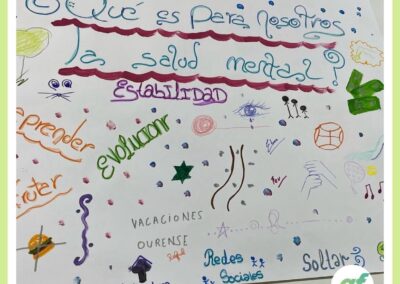 ¿Qué es para nosotros
la salud mental?
ESTABILIDAD
prender
Evolucionar
VACACIONES
OURENSE
Redes
Sociales
Soltar